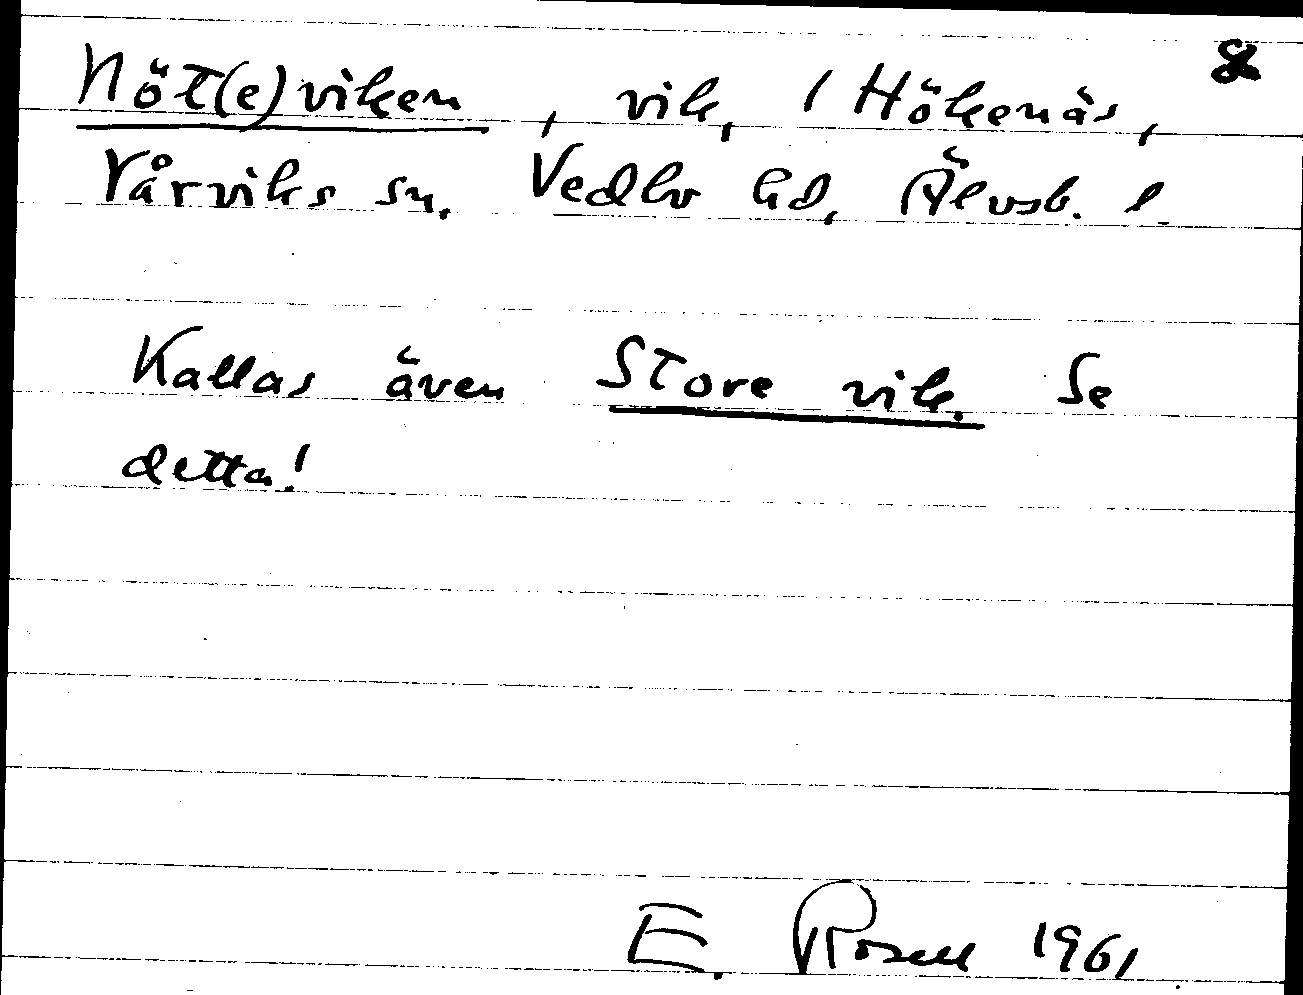 Nöt(e)viken, vik, i Hökenäs,
Vårviks sn. Vedbo hd, Älvsb. l.
Kallas även Store vik. Se
detta!
E. Rosell 1961